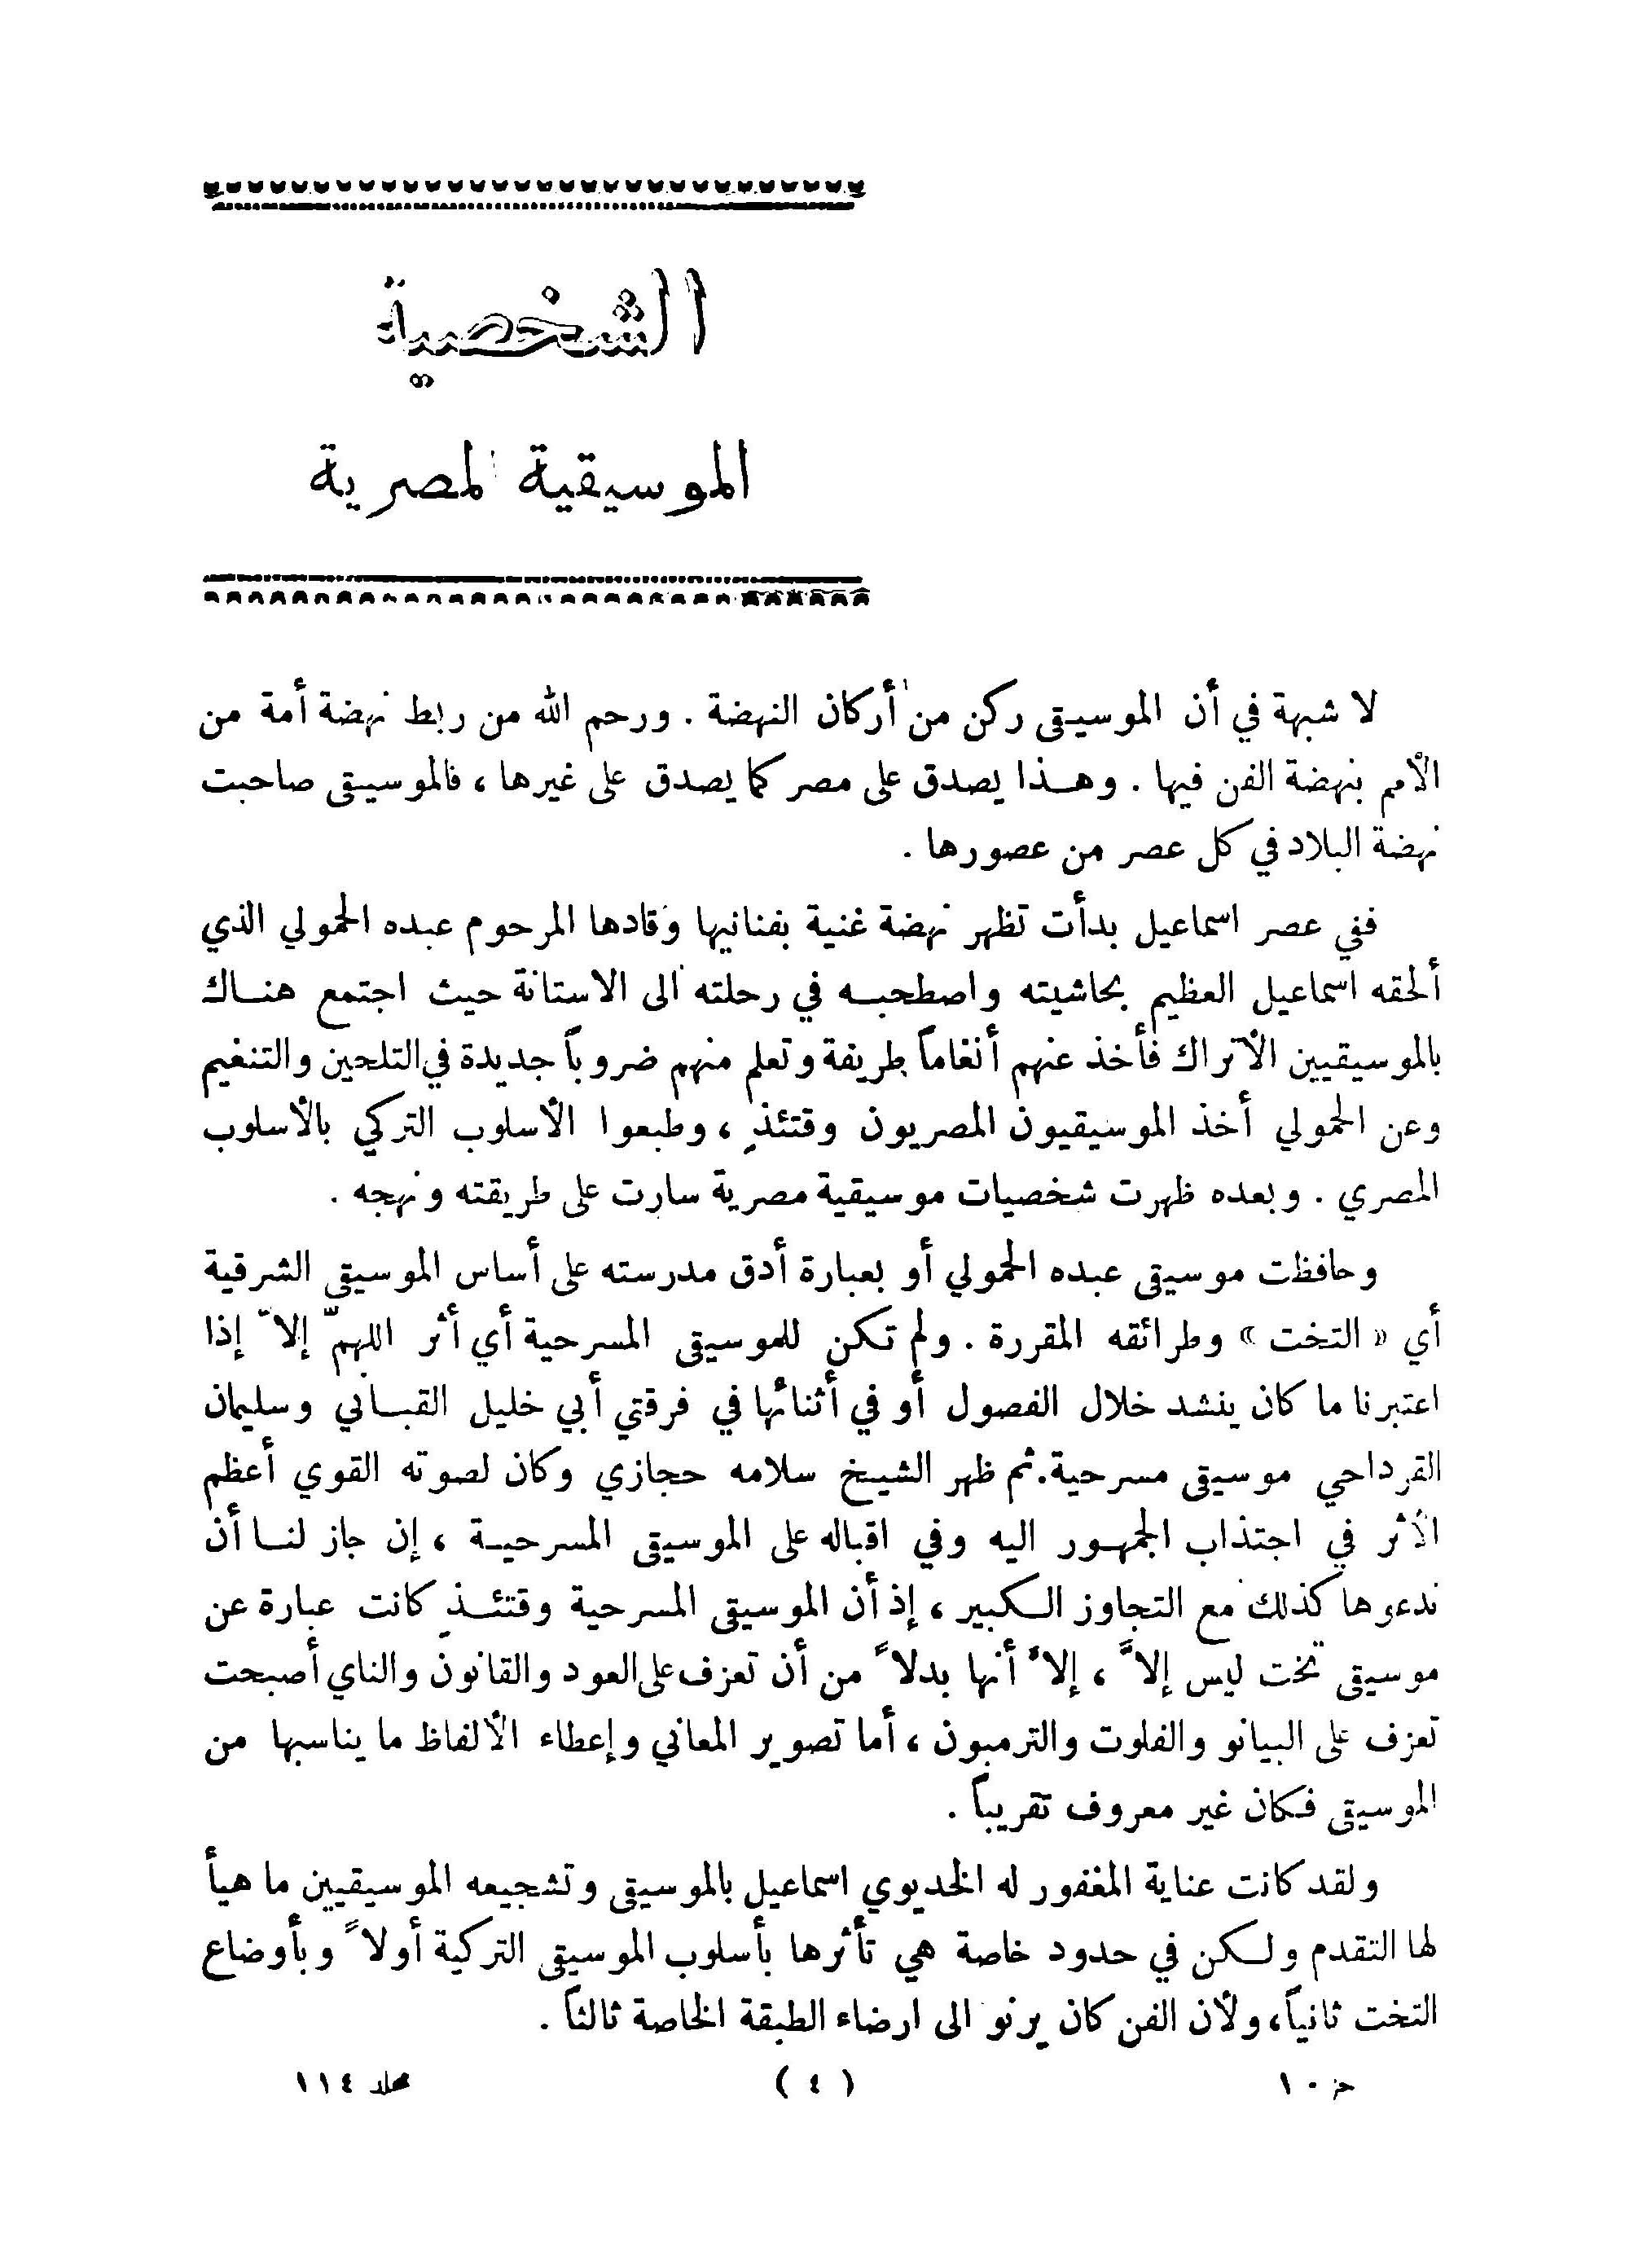 الشخصية
الموسيقية المصرية
لا شبهة في أن الموسيقى ركن من أركان النهضة . ورحم الله من ربط نهضة أمة من
الأمم بنهضة الفن فيها . وهـذا يصدق على مصر كما يصدق على غيرها ، فالموسيقى صاحبت
نهضة البلاد في كل عصر من عصورها .
ففي عصر اسماعيل بدأت تظهر نهضة غنية بفنانيها وقادها المرحوم عبده الحمولي الذي
ألحقه اسماعيل العظيم بحاشيته واصطحبـه في رحلته الى الاستانة حيث اجتمع هنـاك
بالموسيقيين الأتراك فأخذ عنهم أنغاماً طريفة وتعلم منهم ضروباً جديدة في التلحين والتنغيم
وعن الحمولي أخذ الموسيقيون المصريون وقتئذٍ ، وطبعوا الأسلوب التركي بالأسلوب
المصري . وبعده ظهرت شخصيات موسيقية مصرية سارت على طريقته ونهجه .
وحافظت موسيقى عبده الحمولي أو بعبارة أدق مدرسته على أساس الموسيقى الشرقية
أي « التخت » وطرائقه المقررة . ولم تكن للموسيقى المسرحية أي أثر اللهمّ إلاّ إذا
اعتبرنا ما كان ينشد خلال الفصول أو في أثنائها في فرقتي أبي خليل القبـاني وسليمان
القرداحي موسيقى مسرحية. ثم ظهر الشيخ سلامه حجازي وكان لصوته القوي أعظم
الأثر في اجتذاب الجمهـور اليه وفي اقباله على الموسيقى المسرحيـة ، إن جاز لنـا أن
ندعوها كذلك مع التجاوز الـكبير ، إذ أن الموسيقى المسرحية وقتئـذٍ كانت عبارة عن
موسيقى تخت ليس إلاَّ ، إلاَّ أنها بدلاً من أن تعزف على العود والقانون والناي أصبحت
تعزف على البيانو والفلوت والترمبون ، أما تصوير المعاني وإعطاء الألفاظ ما يناسبها من
الموسيقى فـكان غير معروف تقريباً .
ولقد كانت عناية المغفور له الخديوي اسماعيل بالموسيقى وتشجيعه الموسيقيين ما هيأ
لها التقدم ولـكن في حدود خاصة هي تأثرها بأسلوب الموسيقى التركية أولاً وبأوضاع
التخت ثانياً، ولأن الفن كان يرنو الى ارضاء الطبقة الخاصة ثالثاً .
جزء ١٠ (٤) مجلد ١١٤